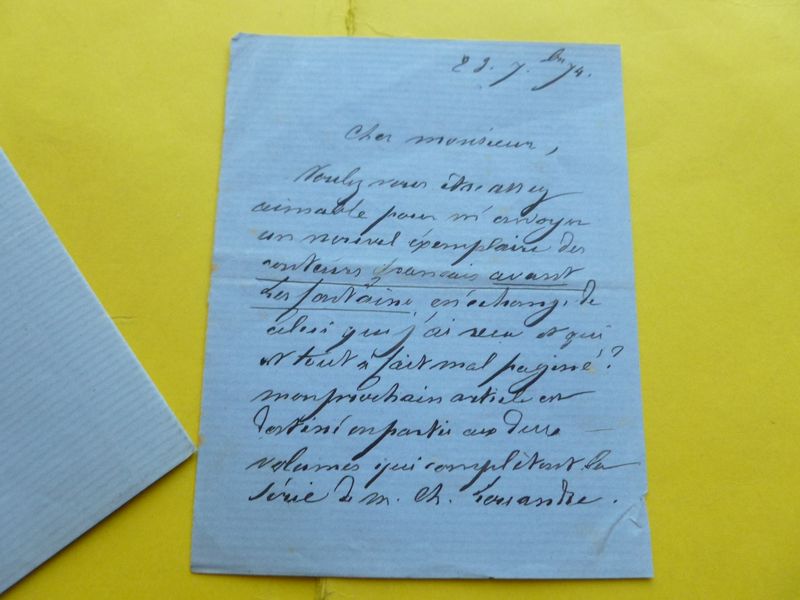 23. 7.bre 74.
Cher monsieur,
Voulez vous être assez
aimable pour m'envoyer
un nouvel exemplaire des
conteurs français avant
La fontaine en échange de
celui que j'ai reçu et qui
est tout à fait mal paginé ?
mon prochain article est
destiné en partie aux deux
volumes qui complètent la
série de m. Ch. Louandre.